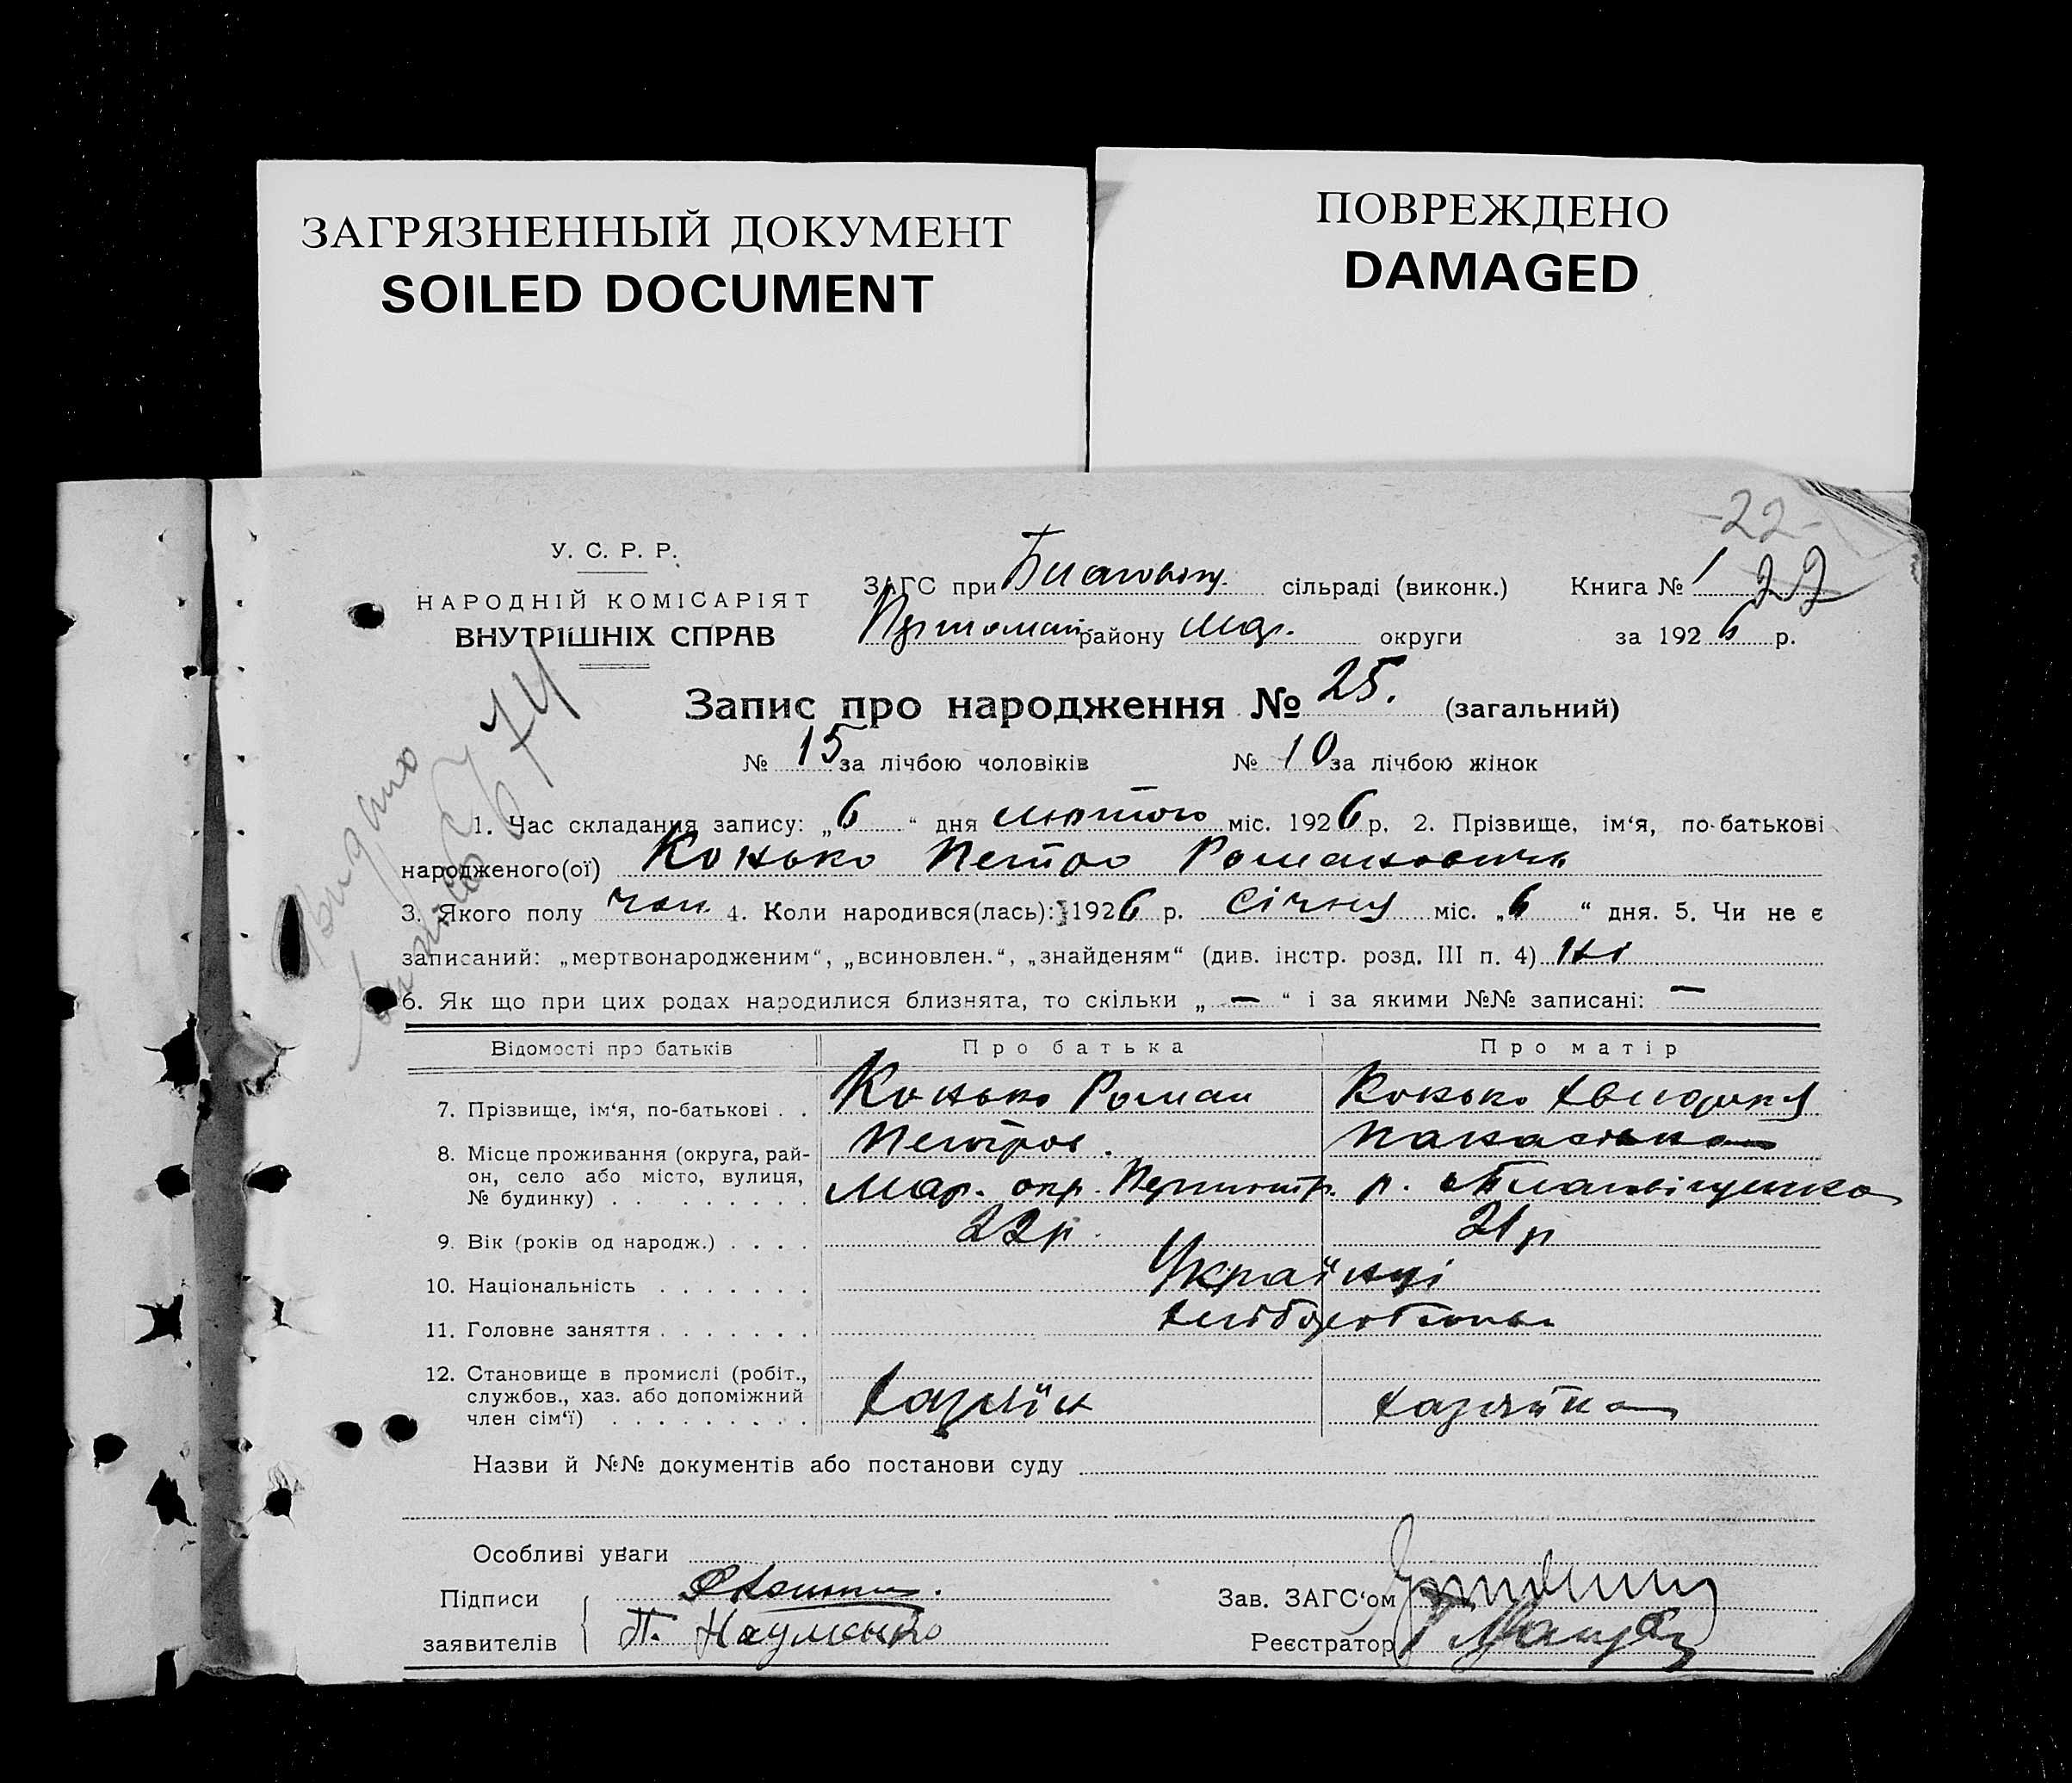 ЗАГРЯЗНЕННЫЙ ДОКУМЕНТ
SOILED DOCUMENT
ПОВРЕЖДЕНО
DAMAGED
-22-
У. С. Р. Р.
НАРОДНІЙ КОМІСАРІЯТ
ВНУТРІШНІХ СПРАВ
ЗАГС при Благовіщ. сільраді (виконк.) Книга № 1 22
району Мар. округи за 1926 р.
Запис про народження № 25. (загальний)
№ 15 за лічбою чоловіків № 10 за лічбою жінок
1. Час складання запису: „6" дня лютого міс. 1926 р. 2. Прізвище, ім'я, по-батькові
народженого(ої) Конько Петро Романовичь
3. Якого полу чол. 4. Коли народився(лась): 1926 р. січня міс. „6" дня. 5. Чи не є
записаний: „мертвонародженим", „всиновлен.", „знайденям" (див. інстр. розд. III п. 4) ні
6. Як що при цих родах народилися близнята, то скільки „ — " і за якими №№ записані: —
Відомості про батьків Про батька Про матір
7. Прізвище, ім'я, по-батькові . . Конько Роман Петров. Конько
8. Місце проживання (округа, рай-
он, село або місто, вулиця,
№ будинку) . . . . . . . . . Мар. окр. р.
9. Вік (років од народж.) . . . . 22 р. 21 р
10. Національність . . . . . . . Українці
11. Головне заняття . . . . . . . хліборобство
12. Становище в промислі (робіт.,
службов., хаз. або допоміжний
член сім'ї) . . . . . . . . . хазяїн хазяйка
Назви й №№ документів або постанови суду
Особливі уваги
Підписи
заявителів П. Науменко
Зав. ЗАГС'ом
Реєстратор